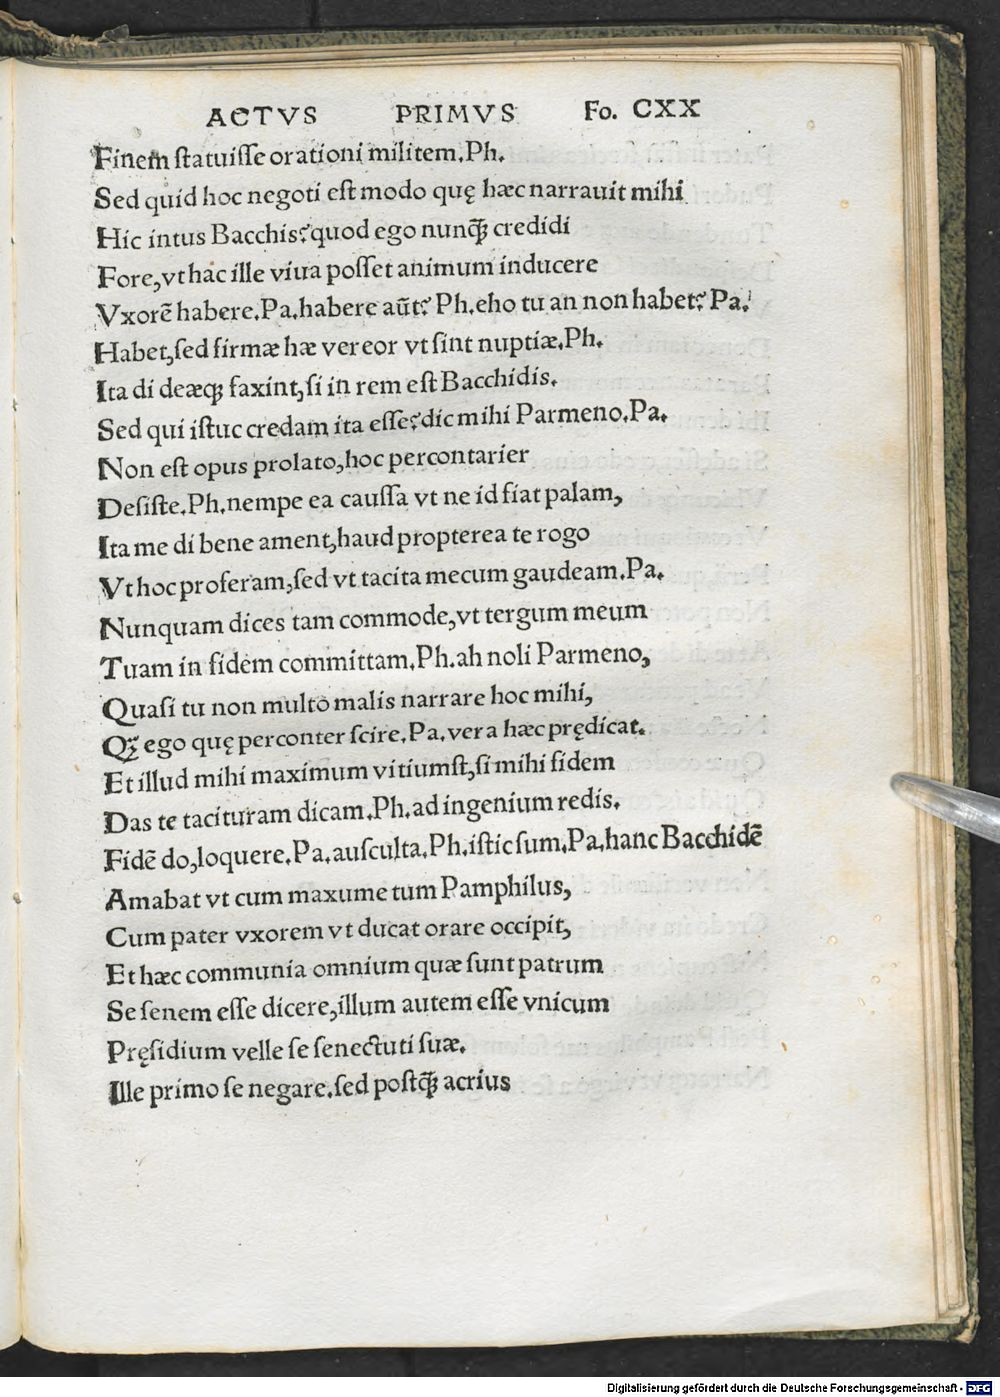 ACTVS PRIMVS Fo. CXX
Finem ſtatuiſſe orationi militem. Ph.
Sed quid hoc negoti eſt modo quę hæc narrauit mihi
Hic intus Bacchis? quod ego nunꝗ̃ credidi
Fore, vt hac ille viua poſſet animum inducere
Vxorẽ habere. Pa. habere aũt? Ph. eho tu an non habet? Pa.
Habet, sed firmæ hæ vereor vt ſint nuptiæ. Ph.
Ita di deæqꝫ faxint, ſi in rem eſt Bacchidis.
Sed qui iſtuc credam ita eſſe? dic mihi Parmeno. Pa.
Non eſt opus prolato, hoc percontarier
Deſiſte. Ph. nempe ea cauſſa vt ne id fiat palam,
Ita me di bene ament, haud propterea te rogo
Vt hoc proferam, sed vt tacita mecum gaudeam. Pa.
Nunquam dices tam commode, vt tergum meum
Tuam in fidem committam. Ph. ah noli Parmeno,
Quaſi tu non multo malis narrare hoc mihi,
Qꝫ̃ ego quę perconter ſcire. Pa. vera hæc prędicat.
Et illud mihi maximum vitiumſt, ſi mihi fidem
Das te tacituram dicam. Ph. ad ingenium redis.
Fidẽ do, loquere. Pa. auſculta. Ph. iſtic ſum. Pa. hanc Bacchidẽ
Amabat vt cum maxume tum Pamphilus,
Cum pater vxorem vt ducat orare occipit,
Et hæc communia omnium quæ ſunt patrum
Se ſenem eſſe dicere, illum autem eſſe vnicum
Pręſidium velle ſe ſenectuti ſuæ.
Ille primo ſe negare. ſed poſtꝗ̃ acrius
Digitalisierung gefördert durch die Deutsche Forschungsgemeinschaft - DFG